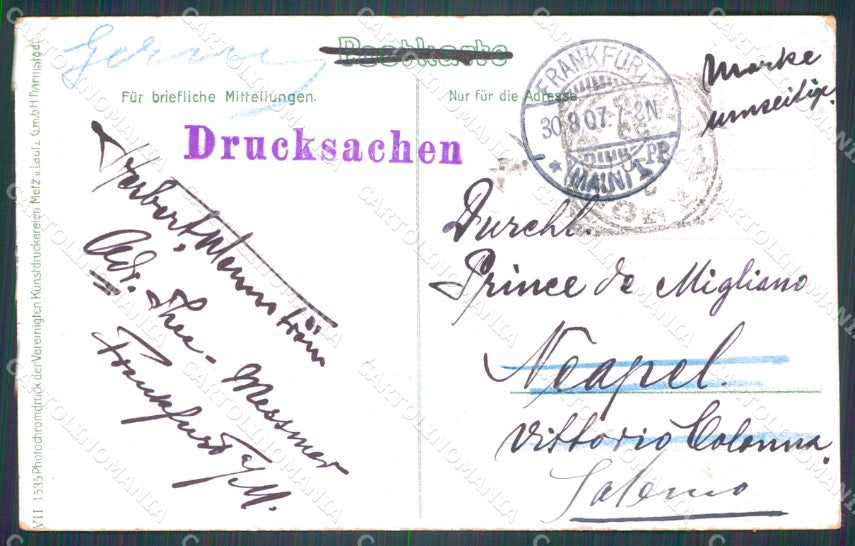 Postkarte
Für briefliche Mitteilungen.
Nur für die Adresse.
Drucksachen
FRANKFURT
30.8.07. 7-8N.
(MAIN) 1
Marke
umseitig.
Durchl.
Prince de Migliano
Neapel.
Vittorio Colonna.
Salerno
Herbert
Adr. Thee-Messmer
Frankfurt a/M.
VII 1535 Photochromdruck der Vereinigten Kunstdruckereien Metz u. Lautz G.m.b.H. Darmstadt.
CARTOLINOMANIA